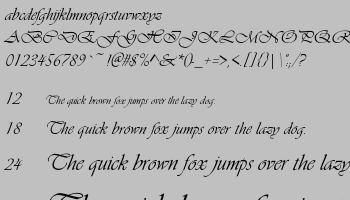 abcdefghijklmnopqrstuvwxyz
ABCDEFGHIJKLMNOPQR
0123456789`~!@#$%^&*()_+=>,<.[]{}|\:;,/?
12 The quick brown fox jumps over the lazy dog.
18 The quick brown fox jumps over the lazy dog.
24 The quick brown fox jumps over the lazy